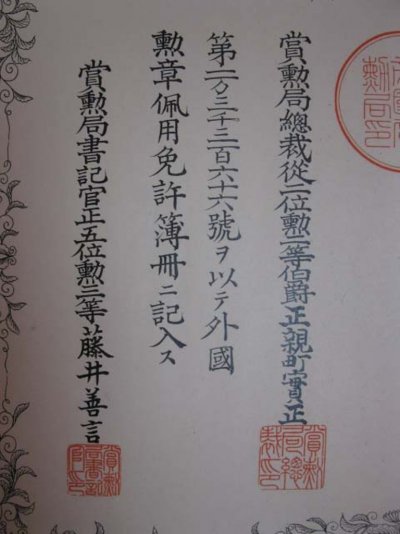 賞勲局總裁從二位勲一等伯爵正親町實正
賞勲局總裁印
第二万三千三百六十六號ヲ以テ外國
勲章佩用免許簿冊ニ記入ス
賞勲局書記官正五位勲三等藤井善言
賞勲局書記官印